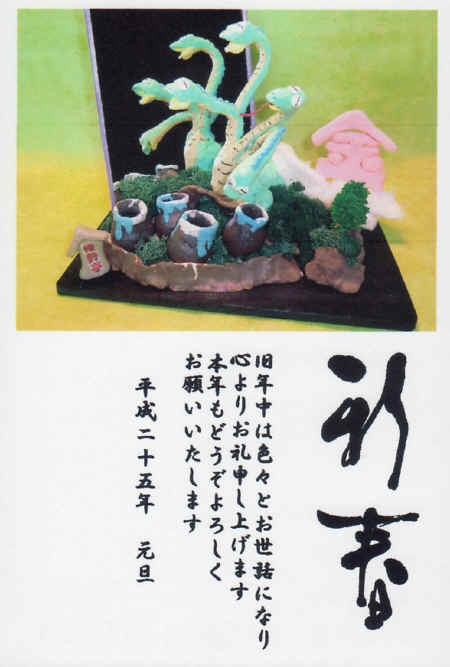 新春
旧年中は色々とお世話になり
心よりお礼申し上げます
本年もどうぞよろしく
お願いいたします
平成二十五年　元旦